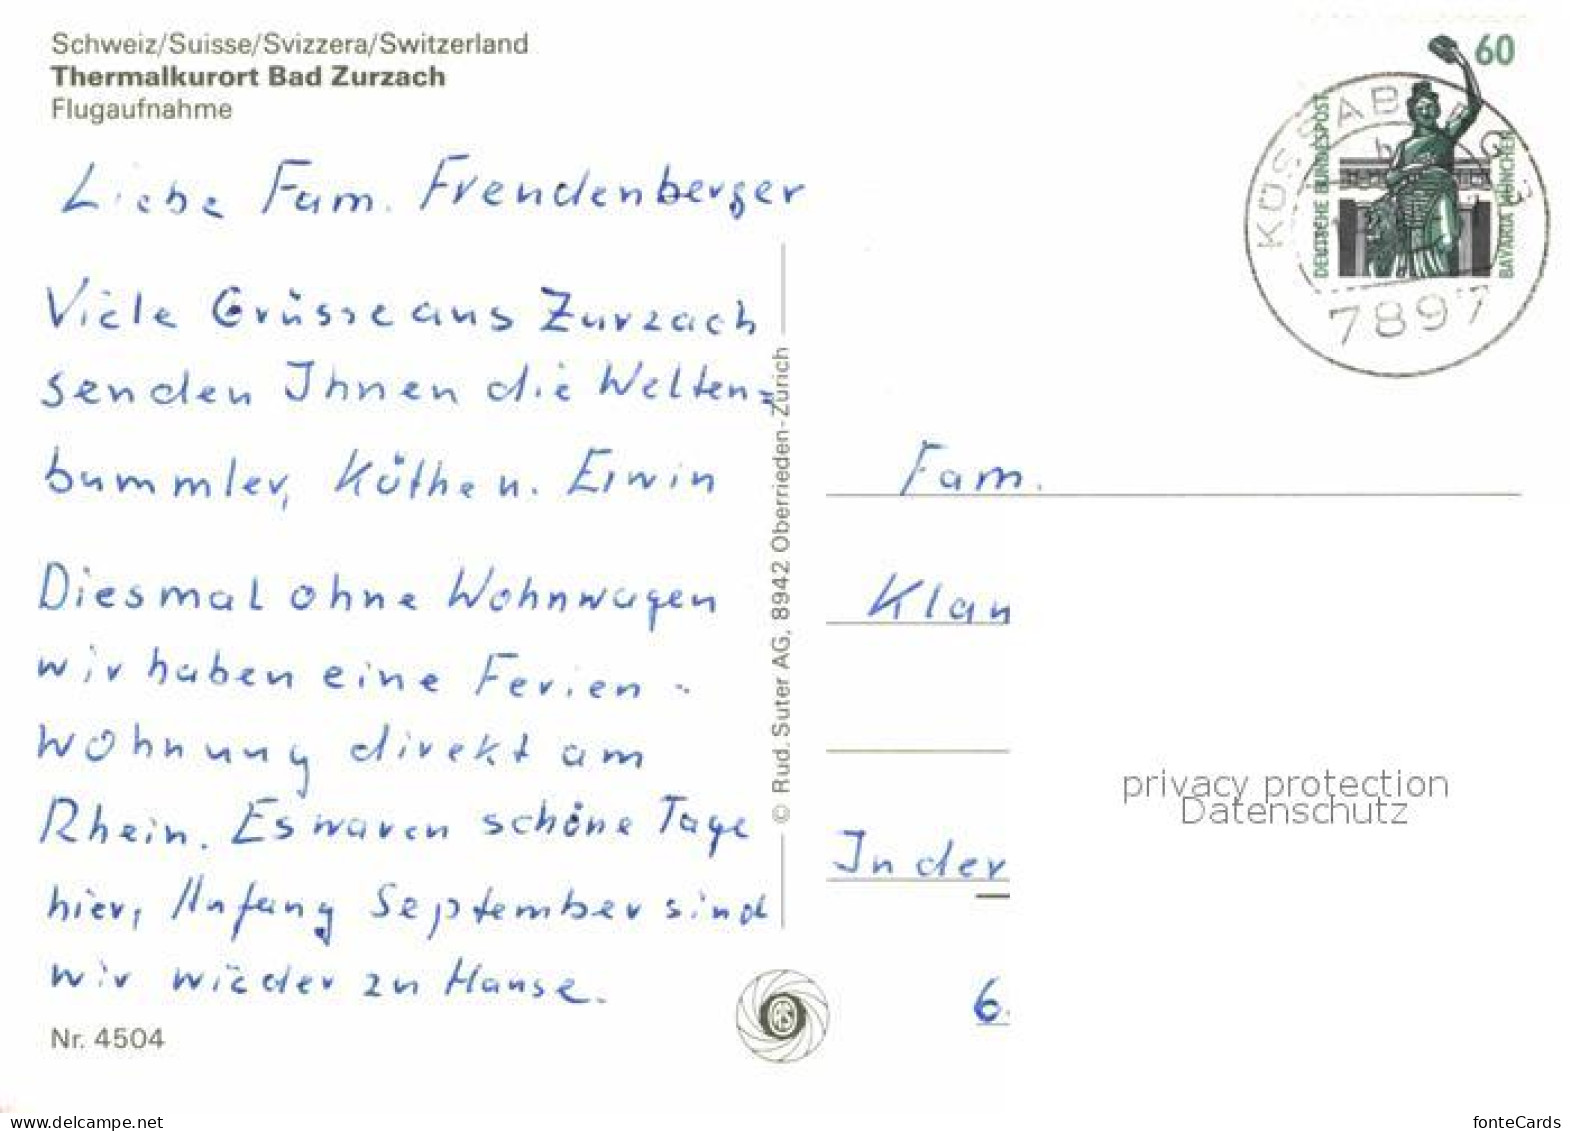 Schweiz/Suisse/Svizzera/Switzerland
Thermalkurort Bad Zurzach
Flugaufnahme
Liebe Fam. Freudenberger
Viele Grüsse aus Zurzach
senden Ihnen die Welten=
bummler, Käthe u. Erwin
Diesmal ohne Wohnwagen
wir haben eine Ferien-
wohnung direkt am
Rhein. Es waren schöne Tage
hier, Anfang September sind
wir wieder zu Hause.
Nr. 4504
© Rud. Suter AG, 8942 Oberrieden-Zürich
60
DEUTSCHE BUNDESPOST
BAVARIA MÜNCHEN
7897
Fam.
Klau
In der
6.
privacy protection
Datenschutz
www.delcampe.net
fonteCards